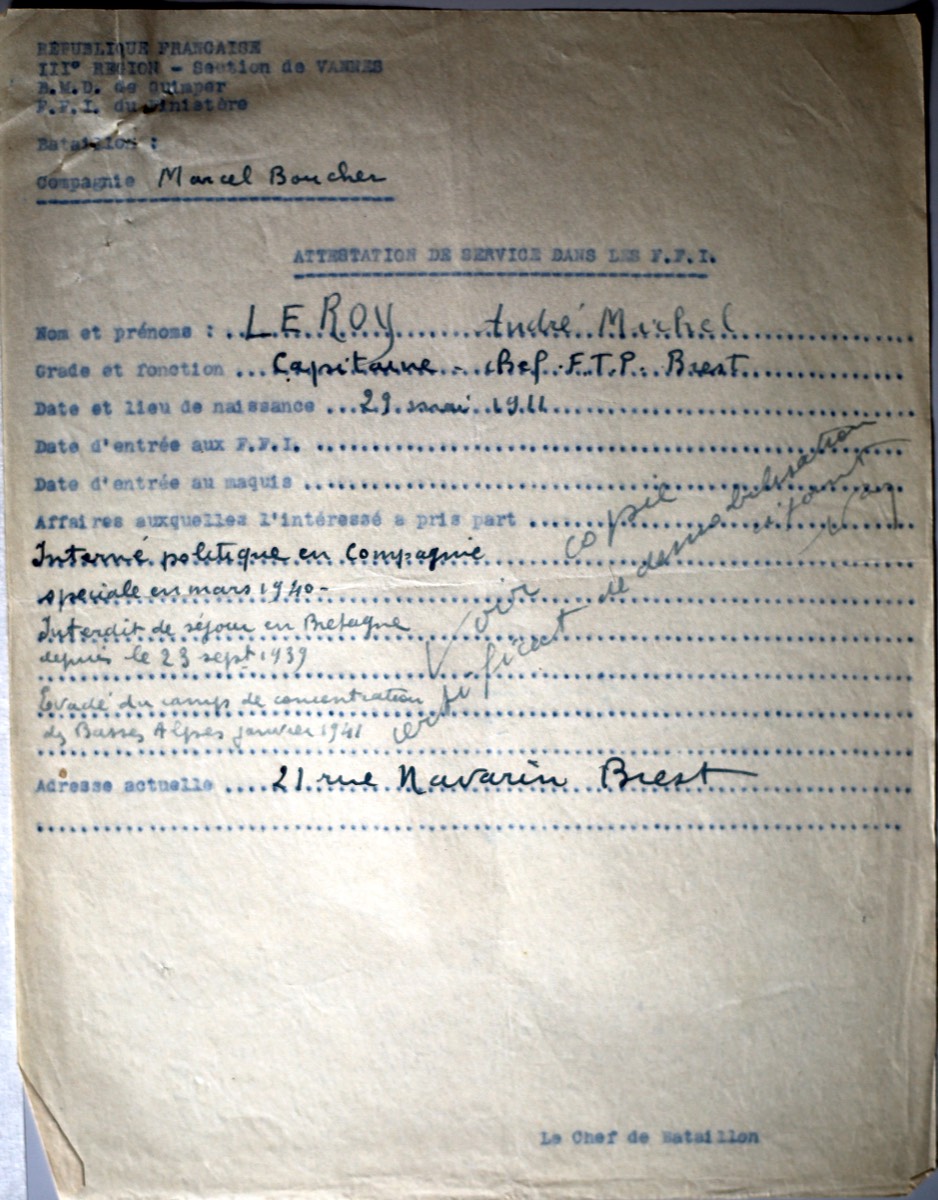 RÉPUBLIQUE FRANCAISE
III° REGION - Section de VANNES
B.M.D. de Quimper
F.F.I. du Finistère
Bataillon :
Compagnie Marcel Boucher
ATTESTATION DE SERVICE DANS LES F.F.I.
Nom et prénoms : LE ROY André Michel
Grade et fonction Capitaine - Chef F.T.P. Brest
Date et lieu de naissance 29 mai 1911
Date d'entrée aux F.F.I.
Date d'entrée au maquis
Affaires auxquelles l'intéressé a pris part
Interné politique en Compagnie
speciale en mars 1940-
Interdit de séjour en Bretagne
depuis le 23 sept 1939
Evadé du camp de concentration
des Basses Alpes janvier 1941
Voir copie
certificat de demobilisation
Adresse actuelle 21 rue Navarin Brest
Le Chef de Bataillon